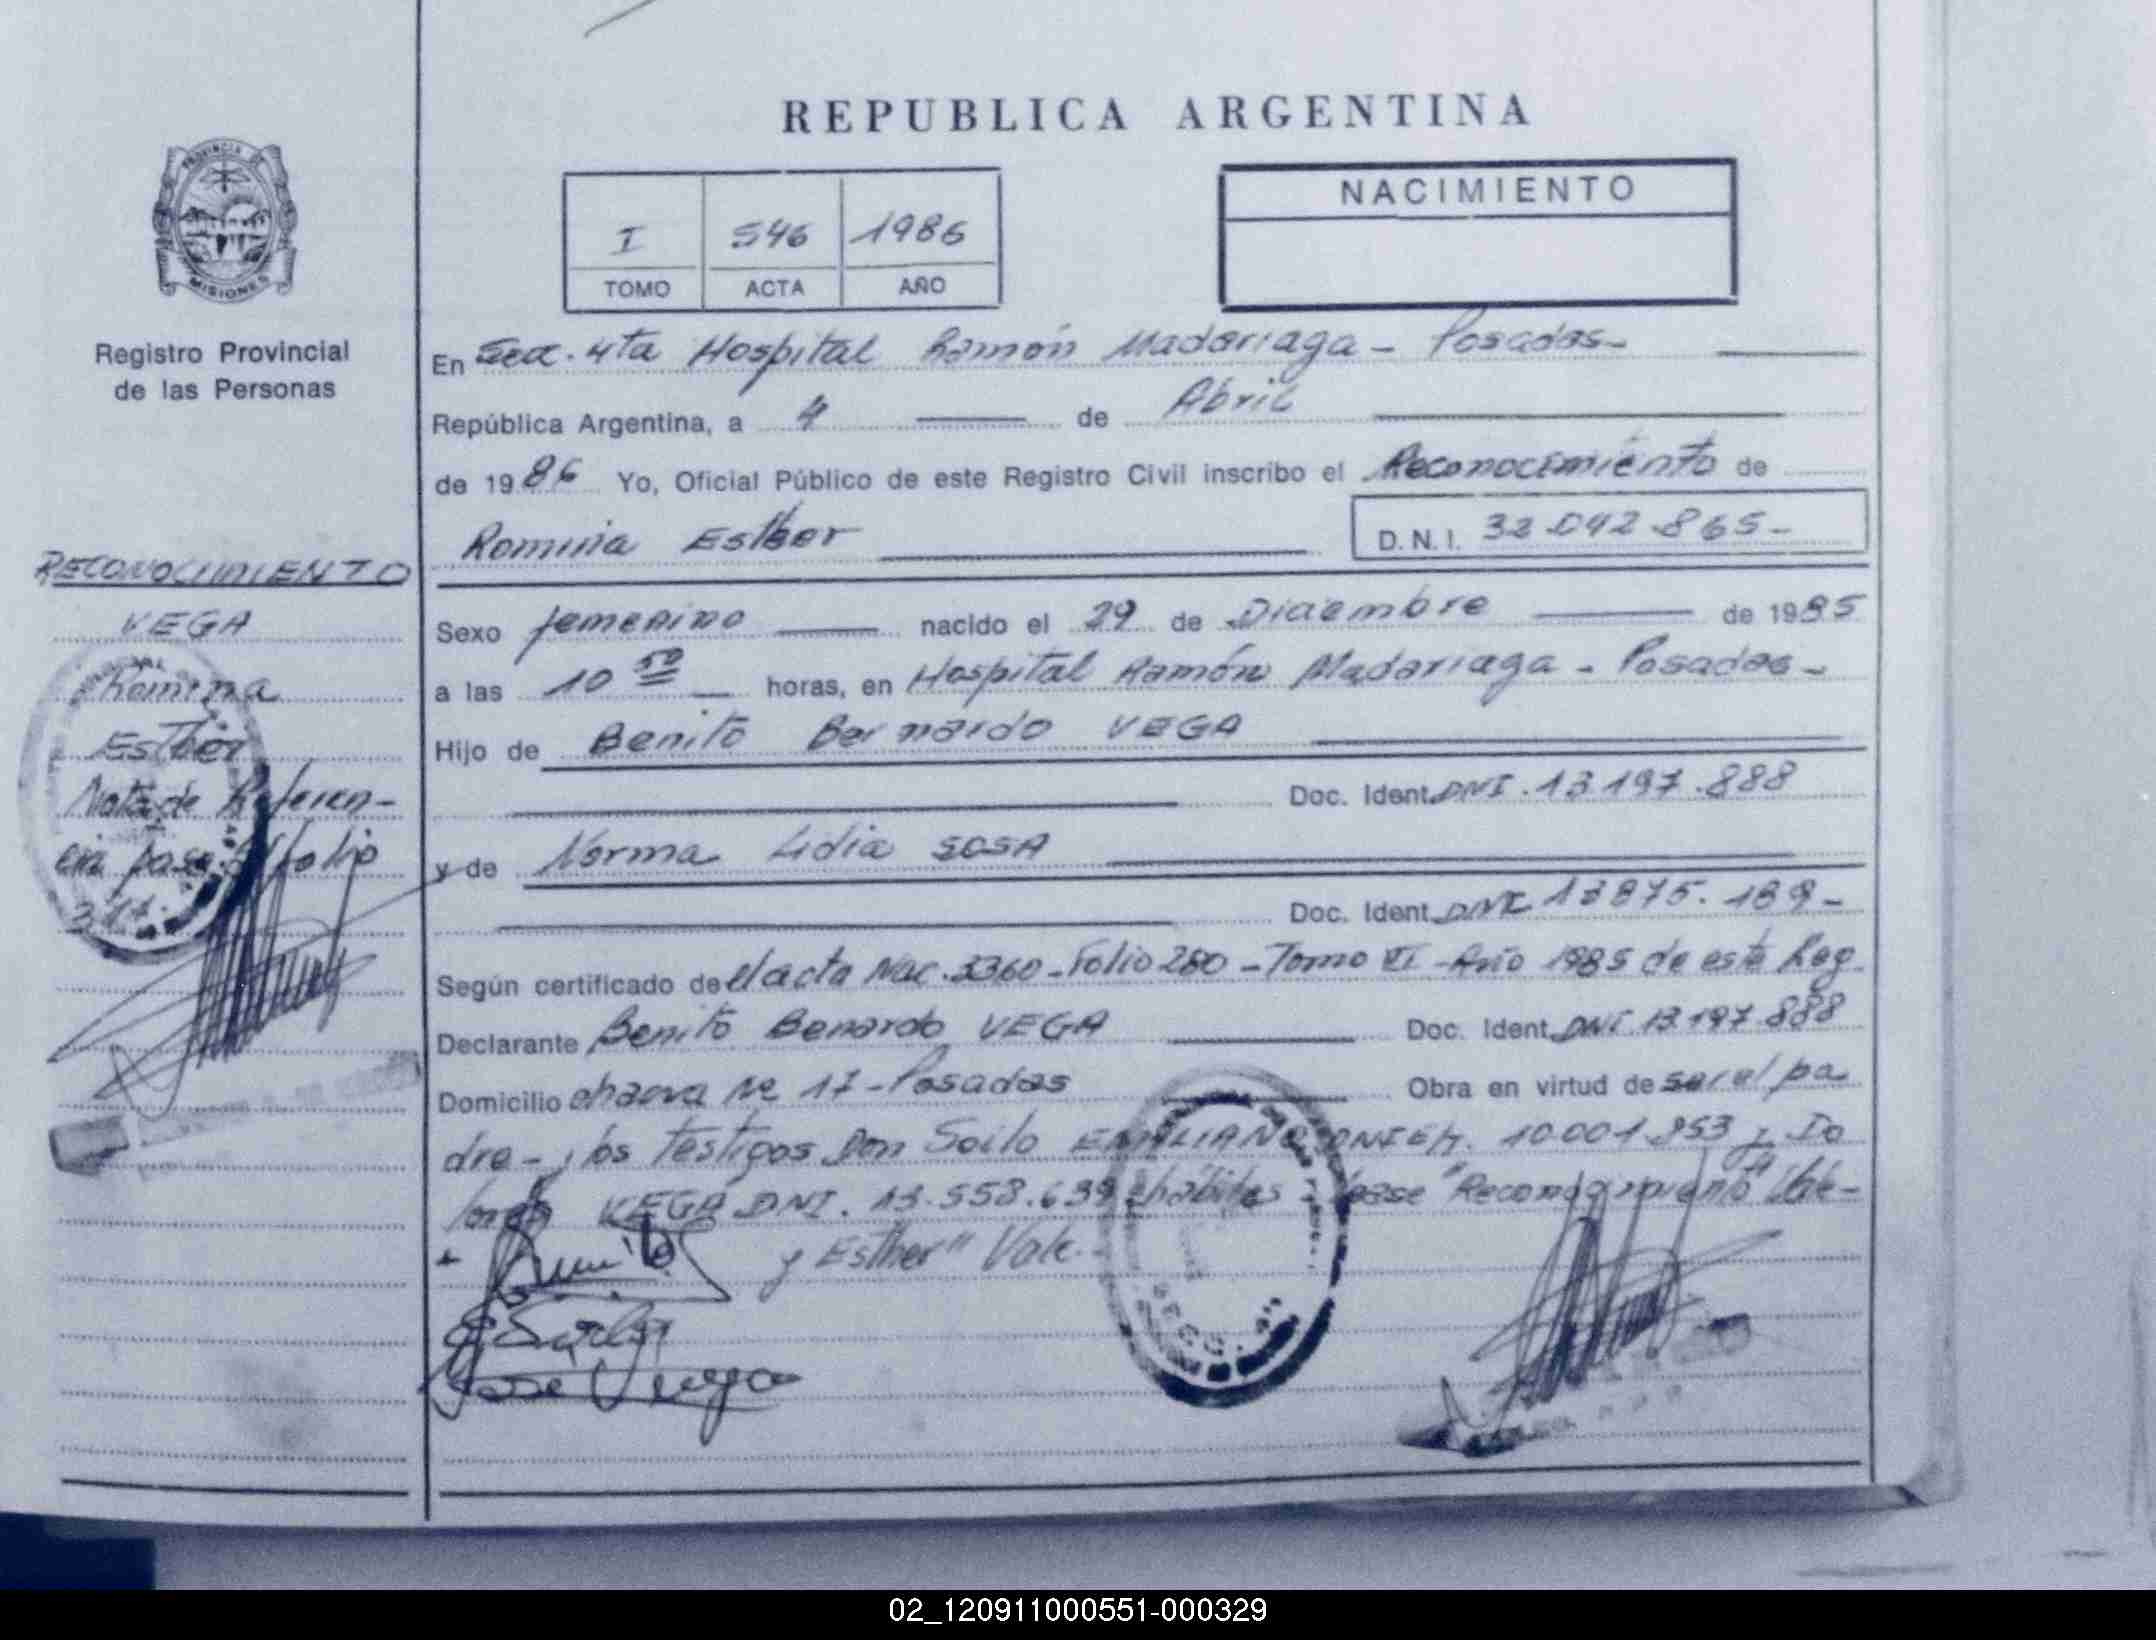 REPUBLICA ARGENTINA
PROVINCIA DE
MISIONES
Registro Provincial
de las Personas
I 546 1986
TOMO ACTA AÑO
NACIMIENTO
En Sec. 4ta Hospital Ramón Madariaga - Posadas-
República Argentina, a 4 de Abril
de 1986 Yo, Oficial Público de este Registro Civil inscribo el Reconocimiento de
Romina Esther D.N.I. 32.042.865-
RECONOCIMIENTO
VEGA
Romina
Esther
Nota de Referen-
cia pasa al folio
Sexo femenino nacido el 29 de Diciembre de 1985
a las 10 50 horas, en Hospital Ramón Madariaga - Posadas-
Hijo de Benito Bernardo VEGA
Doc. Ident. DNI. 13.197.888
y de Norma Lidia SOSA
Doc. Ident. DNI 13875.189-
Según certificado de el acta Nac. 3360 - Folio 280 - Tomo VI - Año 1985 de este Reg.
Declarante Benito Benardo VEGA Doc. Ident. DNI 13.197.888
Domicilio chacra Nº 17 - Posadas Obra en virtud de ser el pa
dre-, los testigos Don Soilo EMILIANO 10.001.953 y
VEGA DNI. 13.558.639 hábiles - "Reconocimiento" Vale-
y Esther" Vale.-
Benito
Jose Vega
02_120911000551-000329